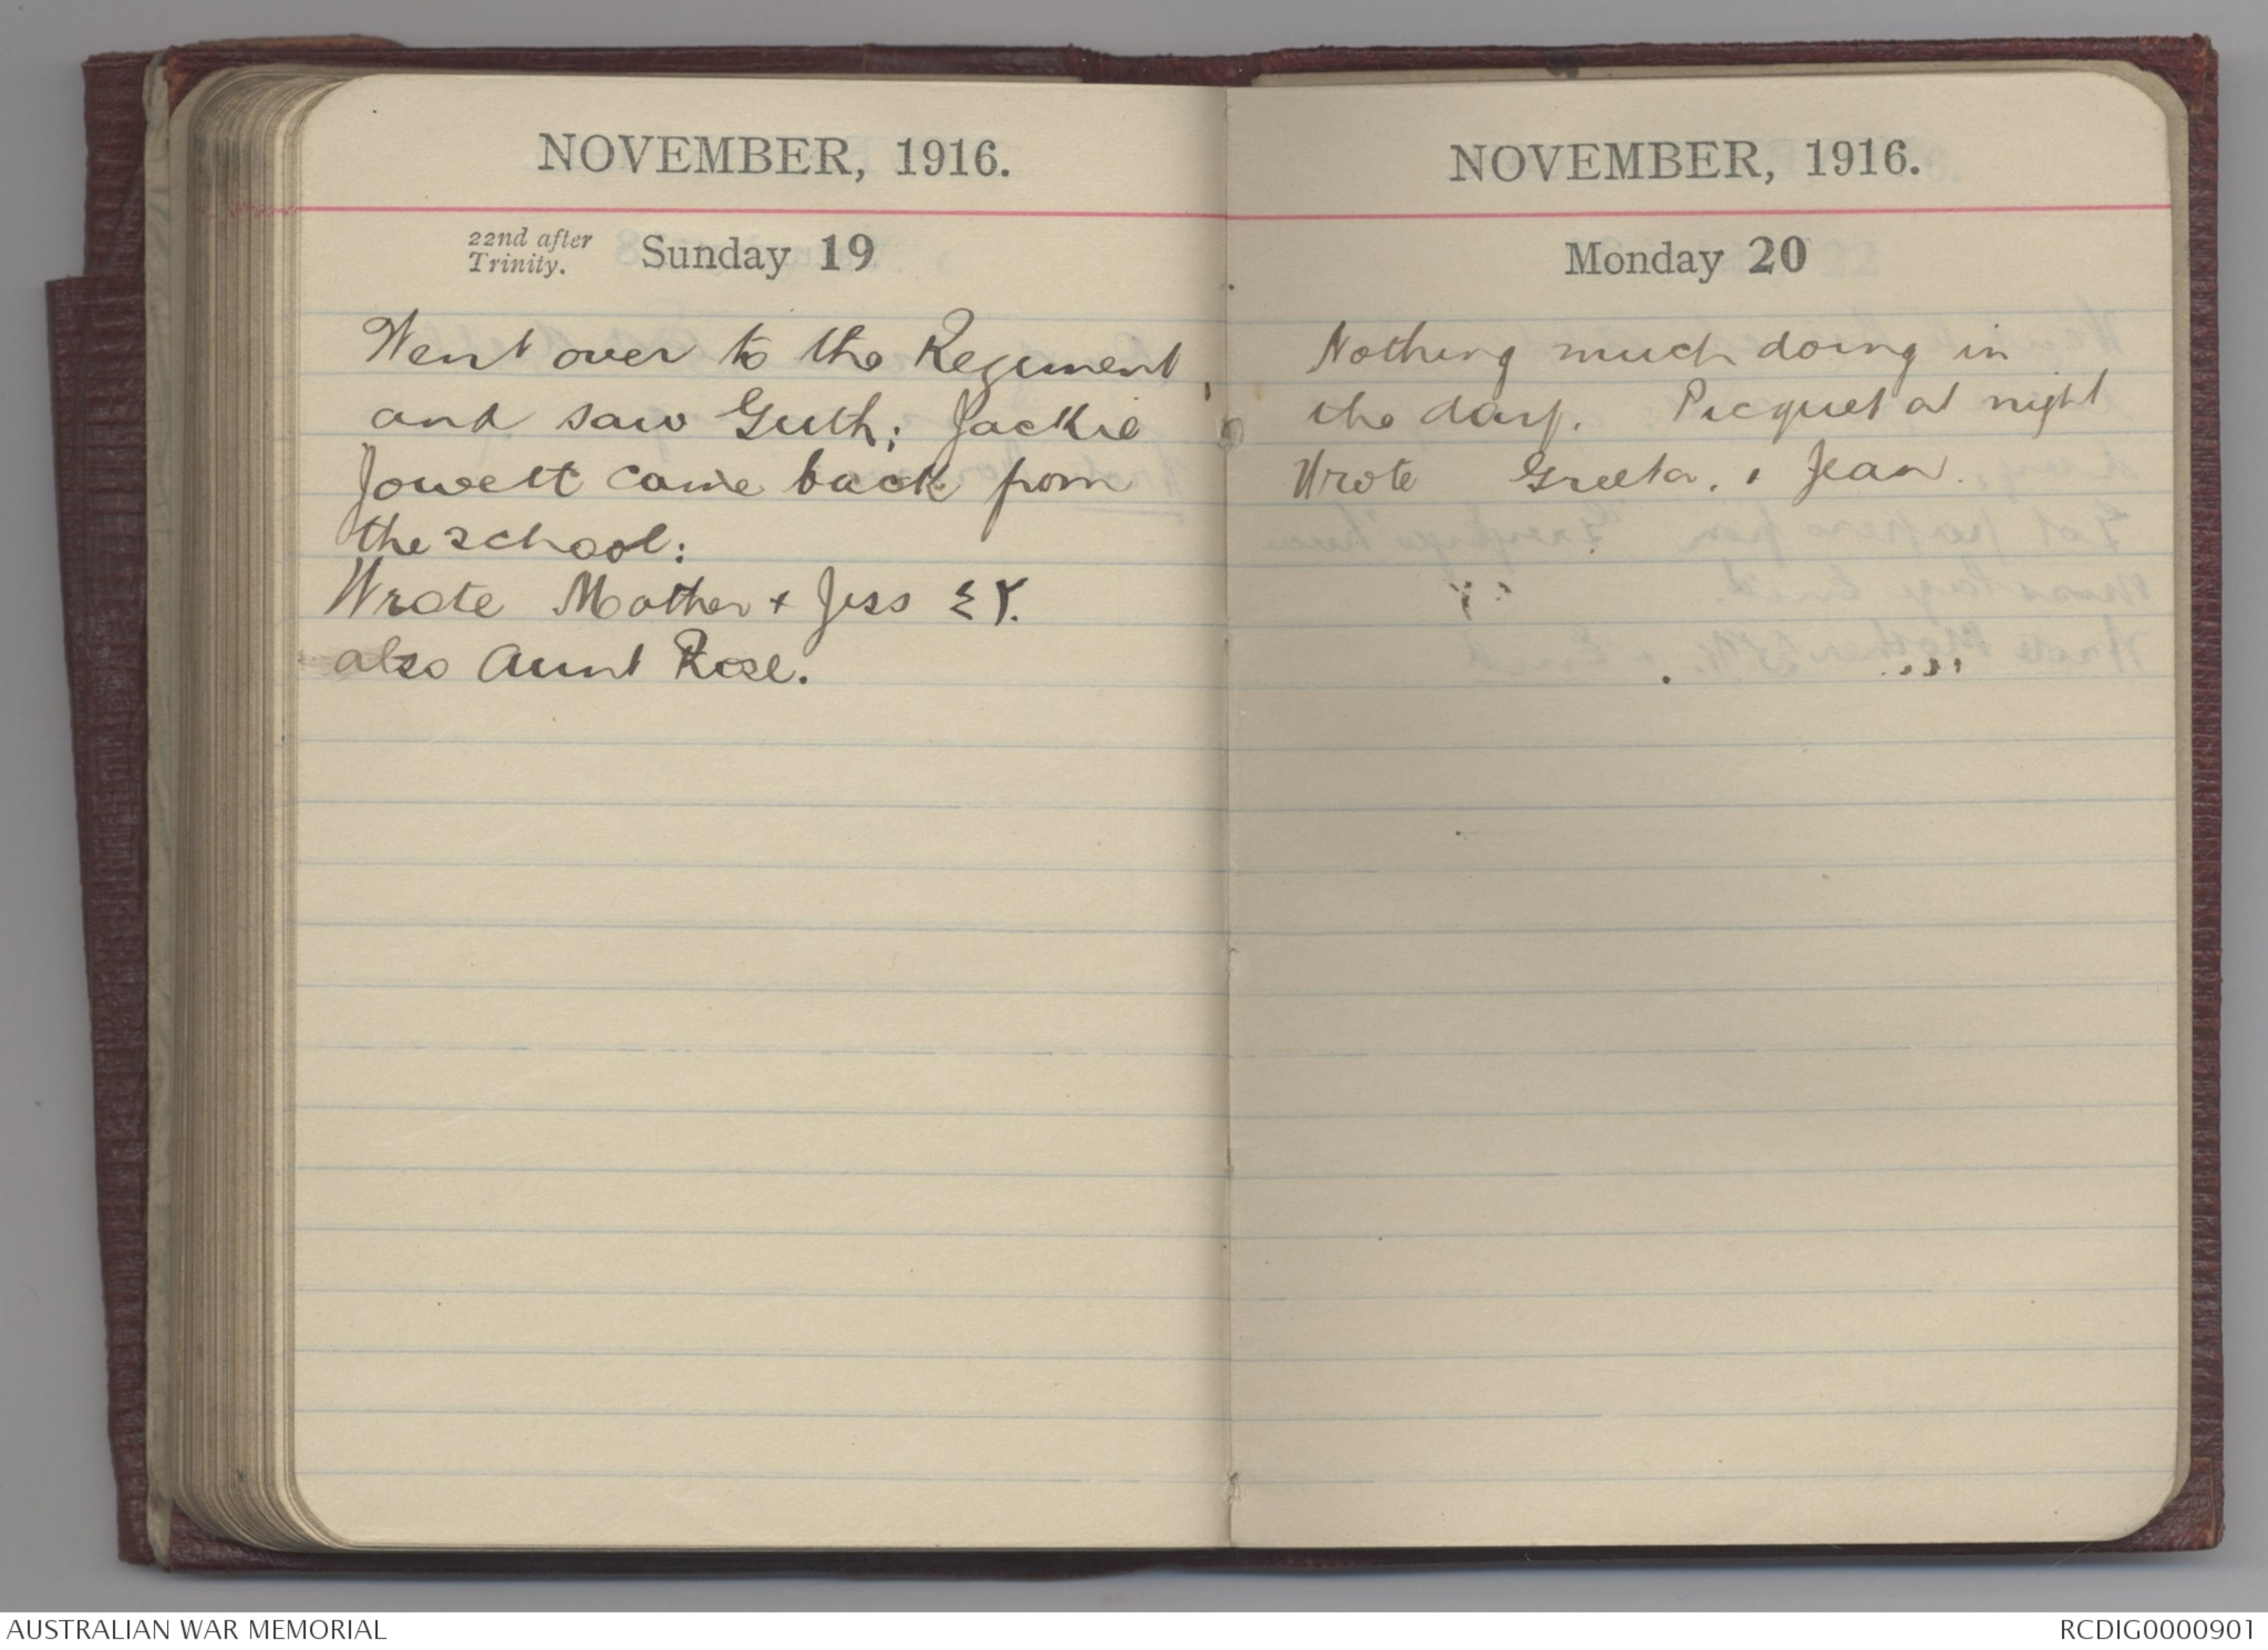 NOVEMBER, 1916.
22nd after
Trinity.
Sunday 19
Went over to the Regiment
and saw Guth; Jackie
Jowett came back from
the school:
Wrote Mother + Jess ٤٢.
also Aunt Rose.
NOVEMBER, 1916.
Monday 20
Nothing much doing in
the day. Picquet at night
Wrote Greeta. + Jean.
AUSTRALIAN WAR MEMORIAL
RCDIG0000901